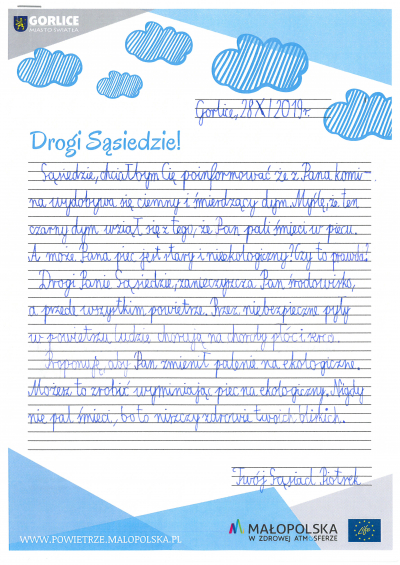 GORLICE
MIASTO ŚWIATŁA
Gorlice, 28 XI 2019r.
Drogi Sąsiedzie!
Sąsiedzie, chciałbym Cię poinformować że z Pana komi-
na wydobywa się ciemny i śmierdzący dym. Myślę, że ten
czarny dym wziął się z tego, że Pan pali śmieci w piecu.
A może Pana piec jest stary i nieekologiczny? Czy to prawda?
Drogi Panie Sąsiedzie, zanieczyszcza Pan środowisko,
a przede wszystkim powietrze. Przez niebezpieczne pyły
w powietrzu ludzie chorują na choroby płuc i serca.
Proponuję, aby Pan zmienił palenie na ekologiczne.
Możesz to zrobić wymieniając piec na ekologiczny. Nigdy
nie pal śmieci, bo to niszczy zdrowie twoich bliskich.
Twój Sąsiad Piotrek
WWW.POWIETRZE.MALOPOLSKA.PL
MAŁOPOLSKA
W ZDROWEJ ATMOSFERZE
Life